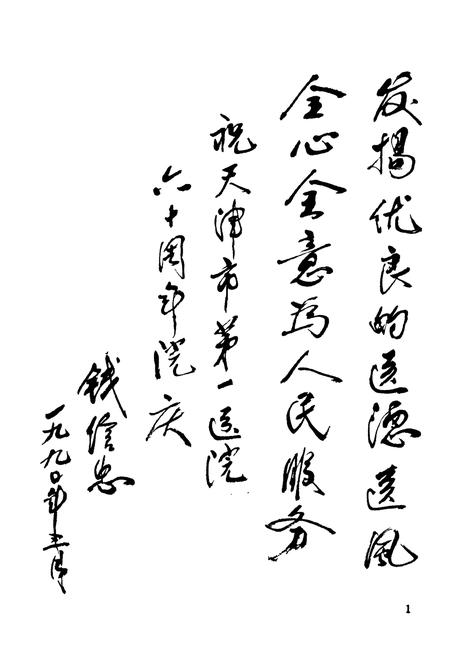 发扬优良的医德医风
全心全意为人民服务
祝天津市第一医院
六十周年院庆
钱信忠
一九九〇年三月
1